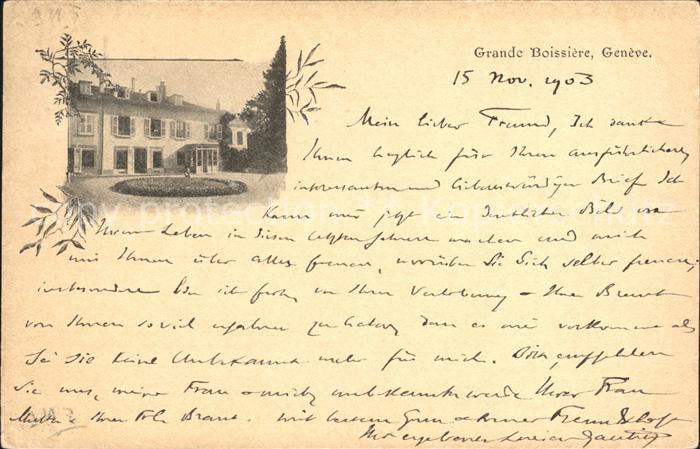 Grande Boissière, Genève.
15 Nov. 1903
Mein lieber Freund, Ich danke
Ihnen herzlich für Ihren ausführlichen,
interessanten und liebenswürdigen Brief. Ich
kann mir jetzt ein deutliches Bild von
Ihrem Leben in diesen letzten Jahren machen und mich
mit Ihnen über alles freuen, worüber Sie Sich selber freuen;
insbesondere bin ich froh, von Ihrer Verlobung – Ihrer Braut
von Ihnen so viel erfahren zu haben, dass es mir vorkommt als
sei sie keine Unbekannte mehr für mich. Bitte, empfehlen
Sie uns, meine Frau & mich, unbekannterweise Ihrer Frau
Mutter & Ihrer Frl. Braut. Mit bestem Gruss & Freundschaft
Ihr ergebener Gautier